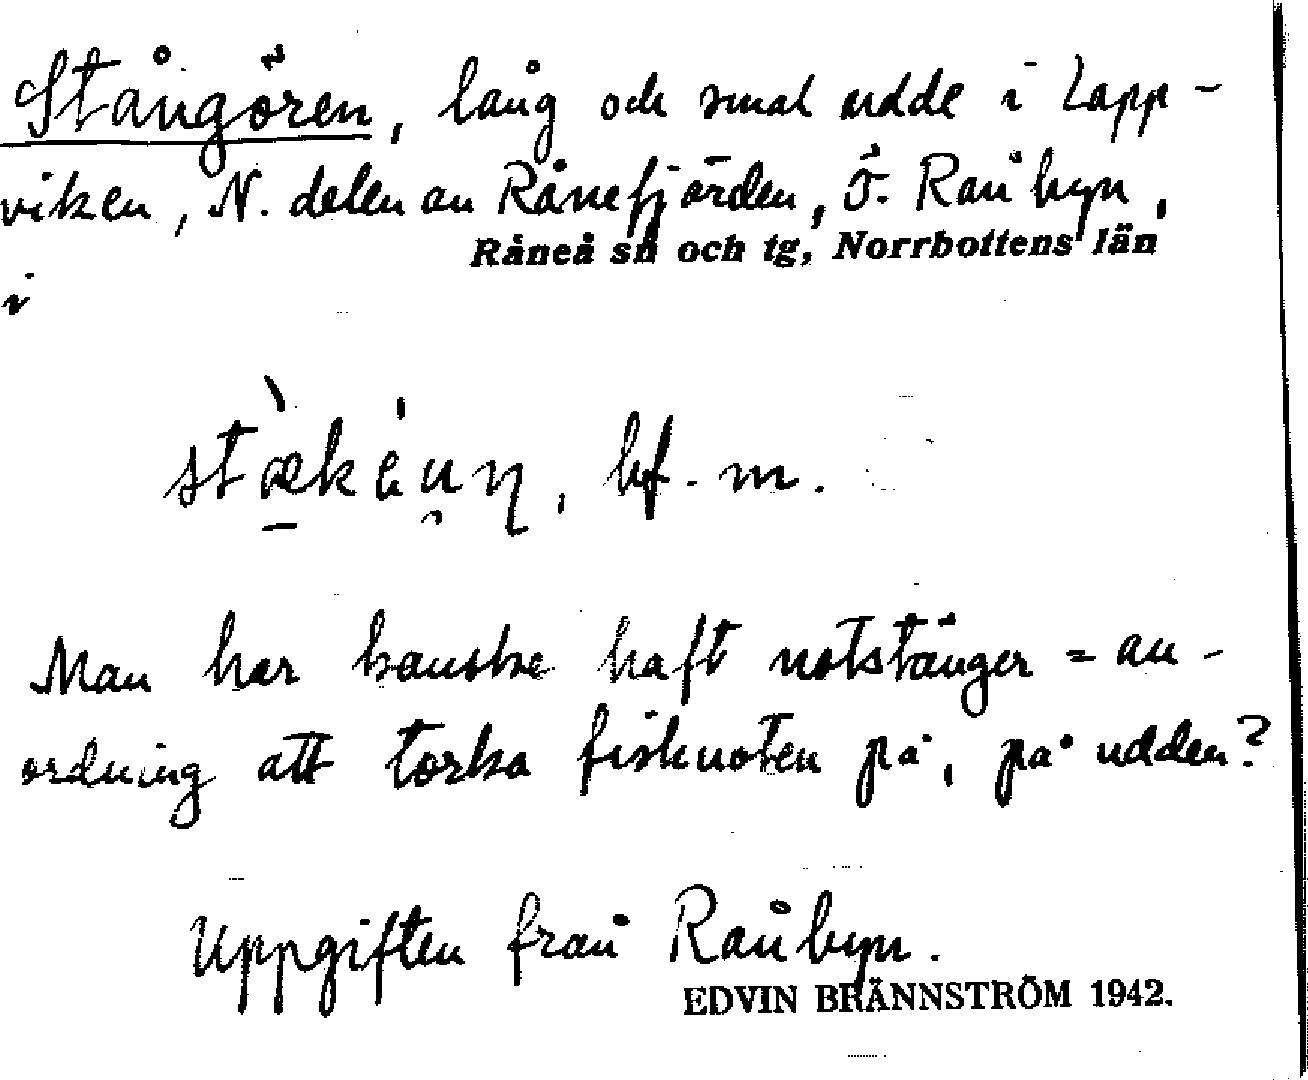 Stångören, lång och smal udde i Lapp-
viken, N. delen av Rånefjärden, Ö. Rånbyn,
Råneå sn och tg, Norrbottens län
i
bf. m.
Man har kanske haft notstänger = an-
ordning att torka fisknoten på, på udden?
Uppgiften från Rånbyn.
EDVIN BRÄNNSTRÖM 1942.